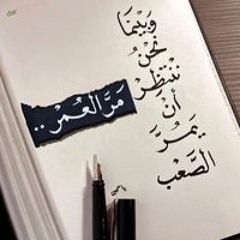 وَبَيْنَمَا
نَحْنُ
نَنْتَظِرُ
أَنْ
يَمُرَّ
الصَّعْبُ
مَرَّ الْعُمْرُ ..